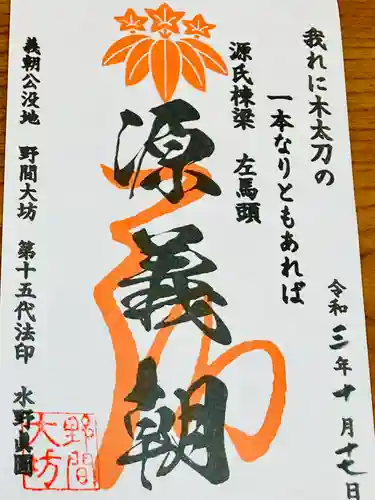 我れに木太刀の
一本なりともあれば
源氏棟梁 左馬頭
源義朝
義朝公没地 野間大坊 第十五代法印 水野真圓
令和三年十月十七日
野間
大坊